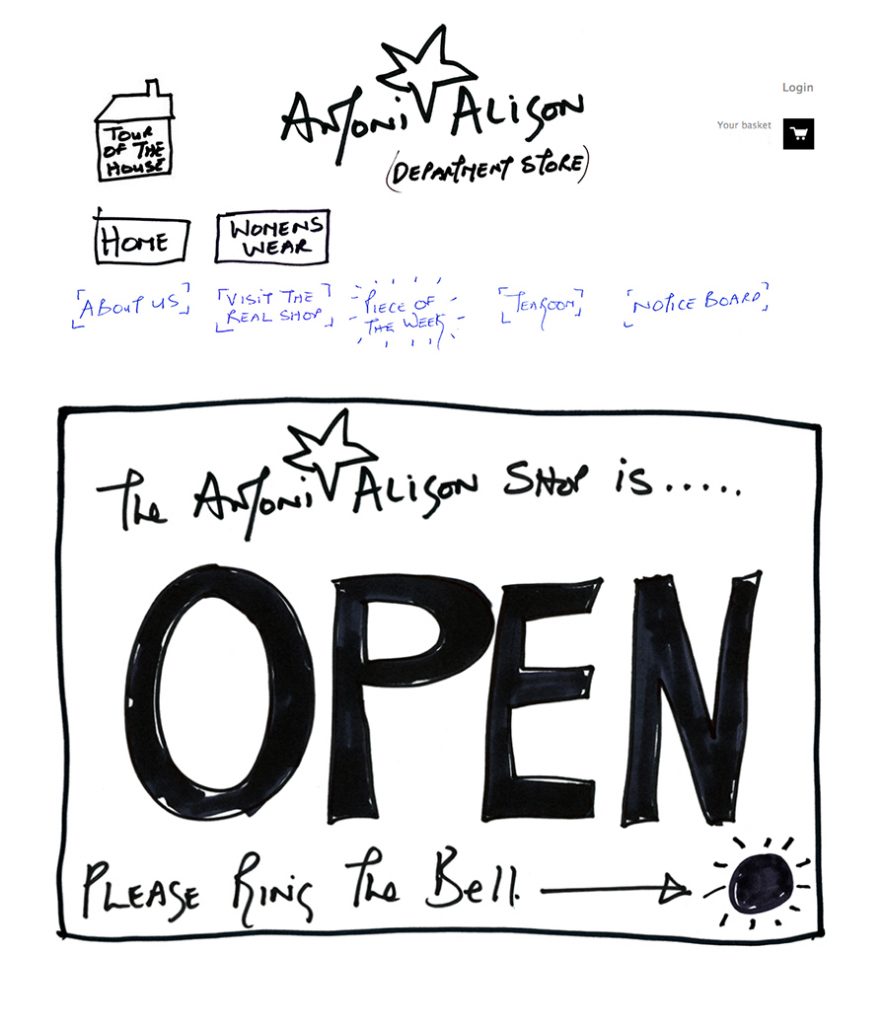 TOUR
OF THE
HOUSE
ANTONI ALISON
(DEPARTMENT STORE)
Login
Your basket
HOME
WOMENS
WEAR
ABOUT US
VISIT THE
REAL SHOP
PIECE OF
THE WEEK
TEAROOM
NOTICE BOARD
The ANTONI ALISON SHOP is.....
OPEN
PLEASE RING The Bell.